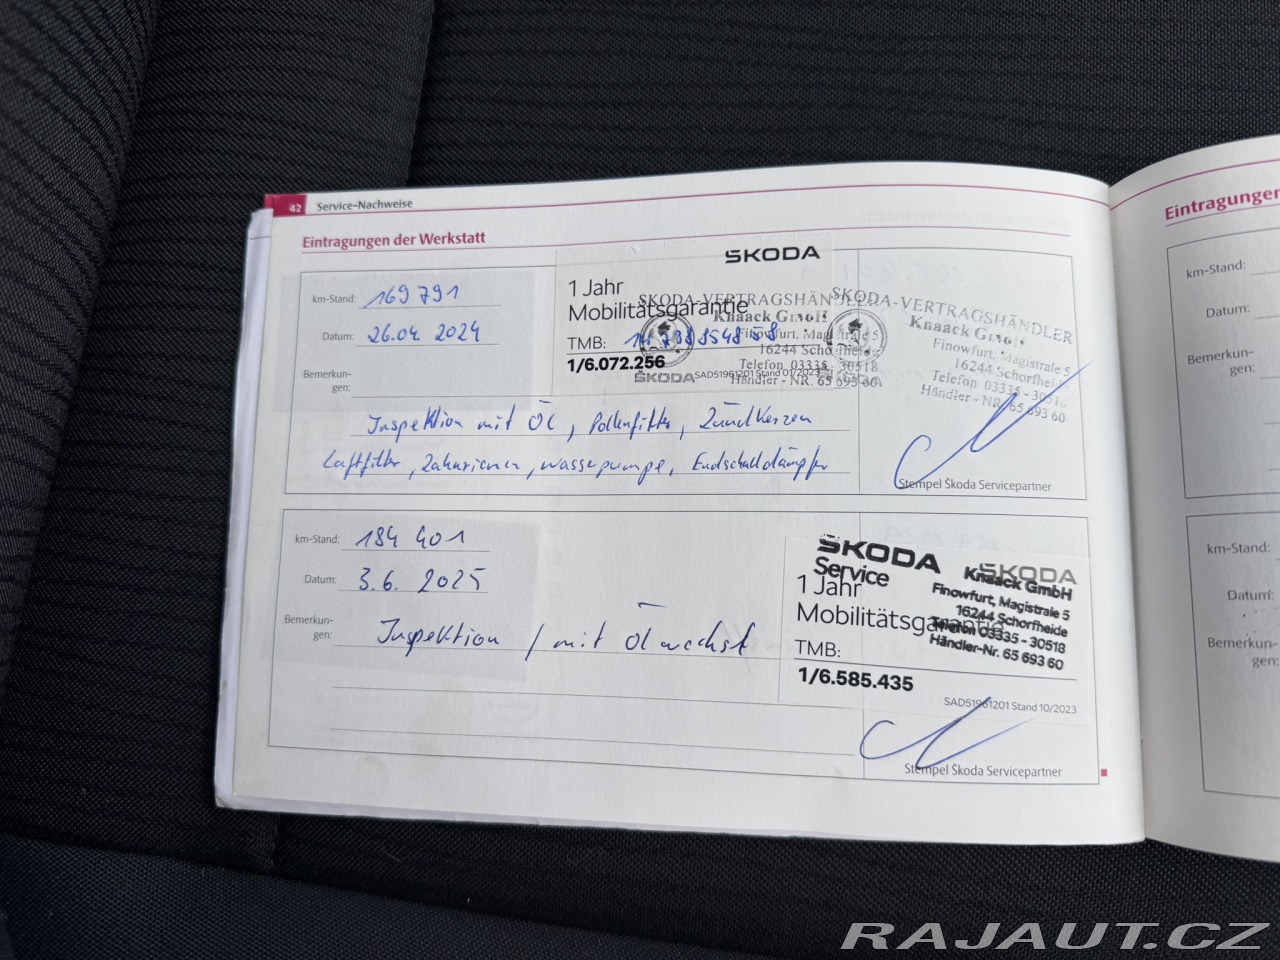 42 Service-Nachweise
Eintragungen der Werkstatt
km-Stand: 169 791
Datum: 26.04 2024
Bemerkun-
gen:
ŠKODA
1 Jahr
Mobilitätsgarantie
TMB:
1/6.072.256
ŠKODA SAD51961201 Stand 01/2023
ŠKODA-VERTRAGSHÄNDLER
Knaack GmbH
Finowfurt, Magistrale 5
16244 Schorfheide
Telefon 03335 - 30518
Händler - NR. 65 693 60
ŠKODA-VERTRAGSHÄNDLER
Knaack GmbH
Finowfurt, Magistrale 5
16244 Schorfheide
Telefon 03335 - 30518
Händler - NR. 65 693 60
Inspektion mit Öl, Pollenfilter, Zündkerzen
Luftfilter, Zahnriemen, Wasserpumpe, Endschalldämpfer
Stempel Škoda Servicepartner
km-Stand: 184 401
Datum: 3.6. 2025
Bemerkun-
gen:
Inspektion / mit Ölwechsl
ŠKODA
Service
ŠKODA
1 Jahr
Mobilitätsgarantie
TMB:
1/6.585.435
SAD51961201 Stand 10/2023
Knaack GmbH
Finowfurt, Magistrale 5
16244 Schorfheide
Telefon 03335 - 30518
Händler-Nr. 65 693 60
Stempel Škoda Servicepartner
Eintragungen
km-Stand:
Datum:
Bemerkun-
gen:
km-Stand:
Datum:
Bemerkun-
gen:
RAJAUT.CZ